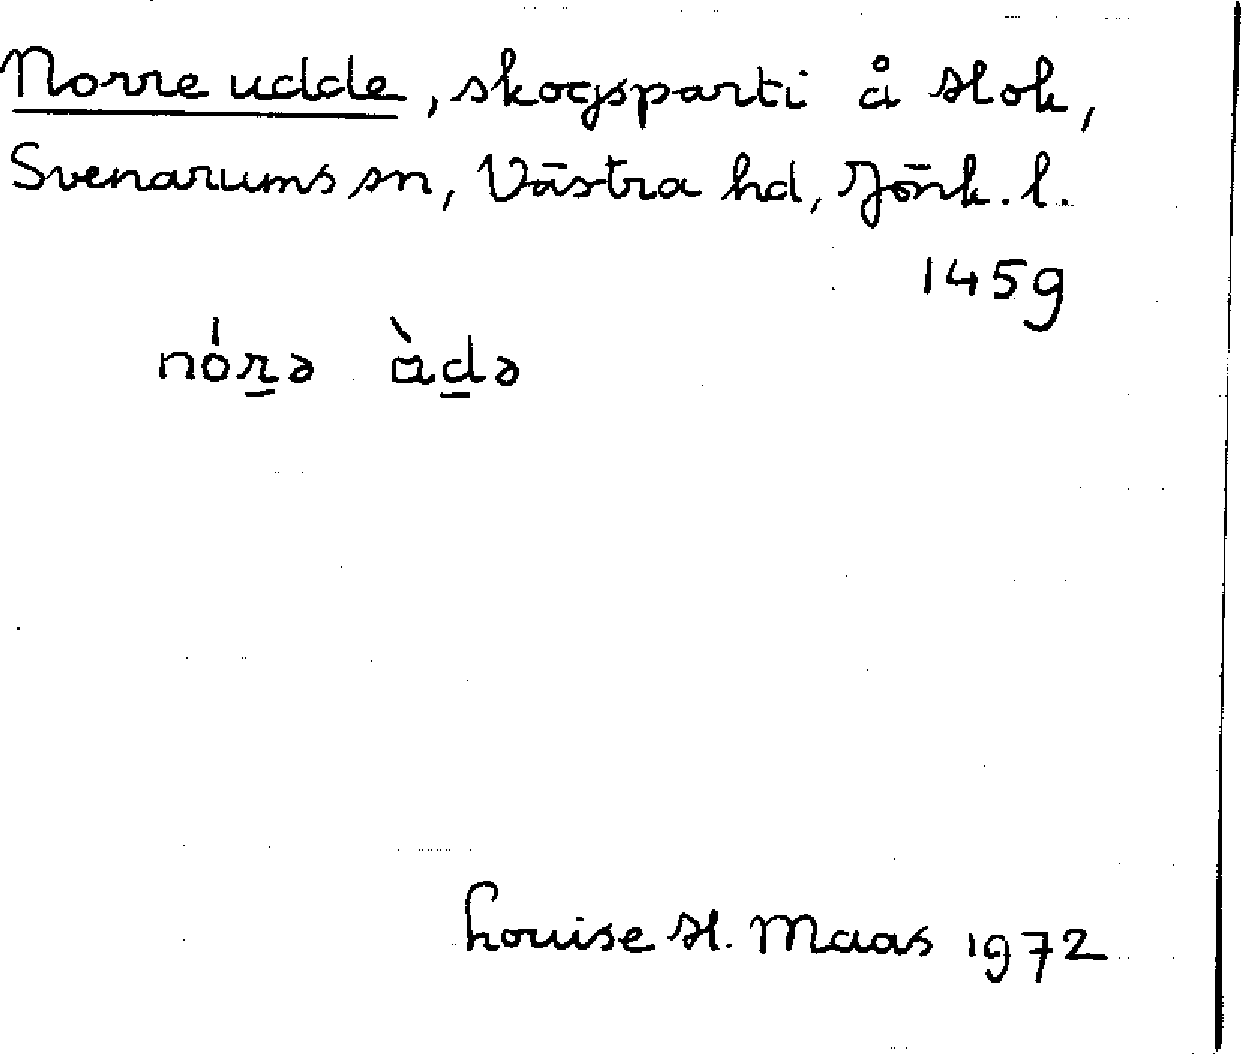 Norre udde, skogsparti å Hok,
Svenarums sn, Västra hd, Jönk. l.
1459
nórə àdə
Louise H. Maas 1972